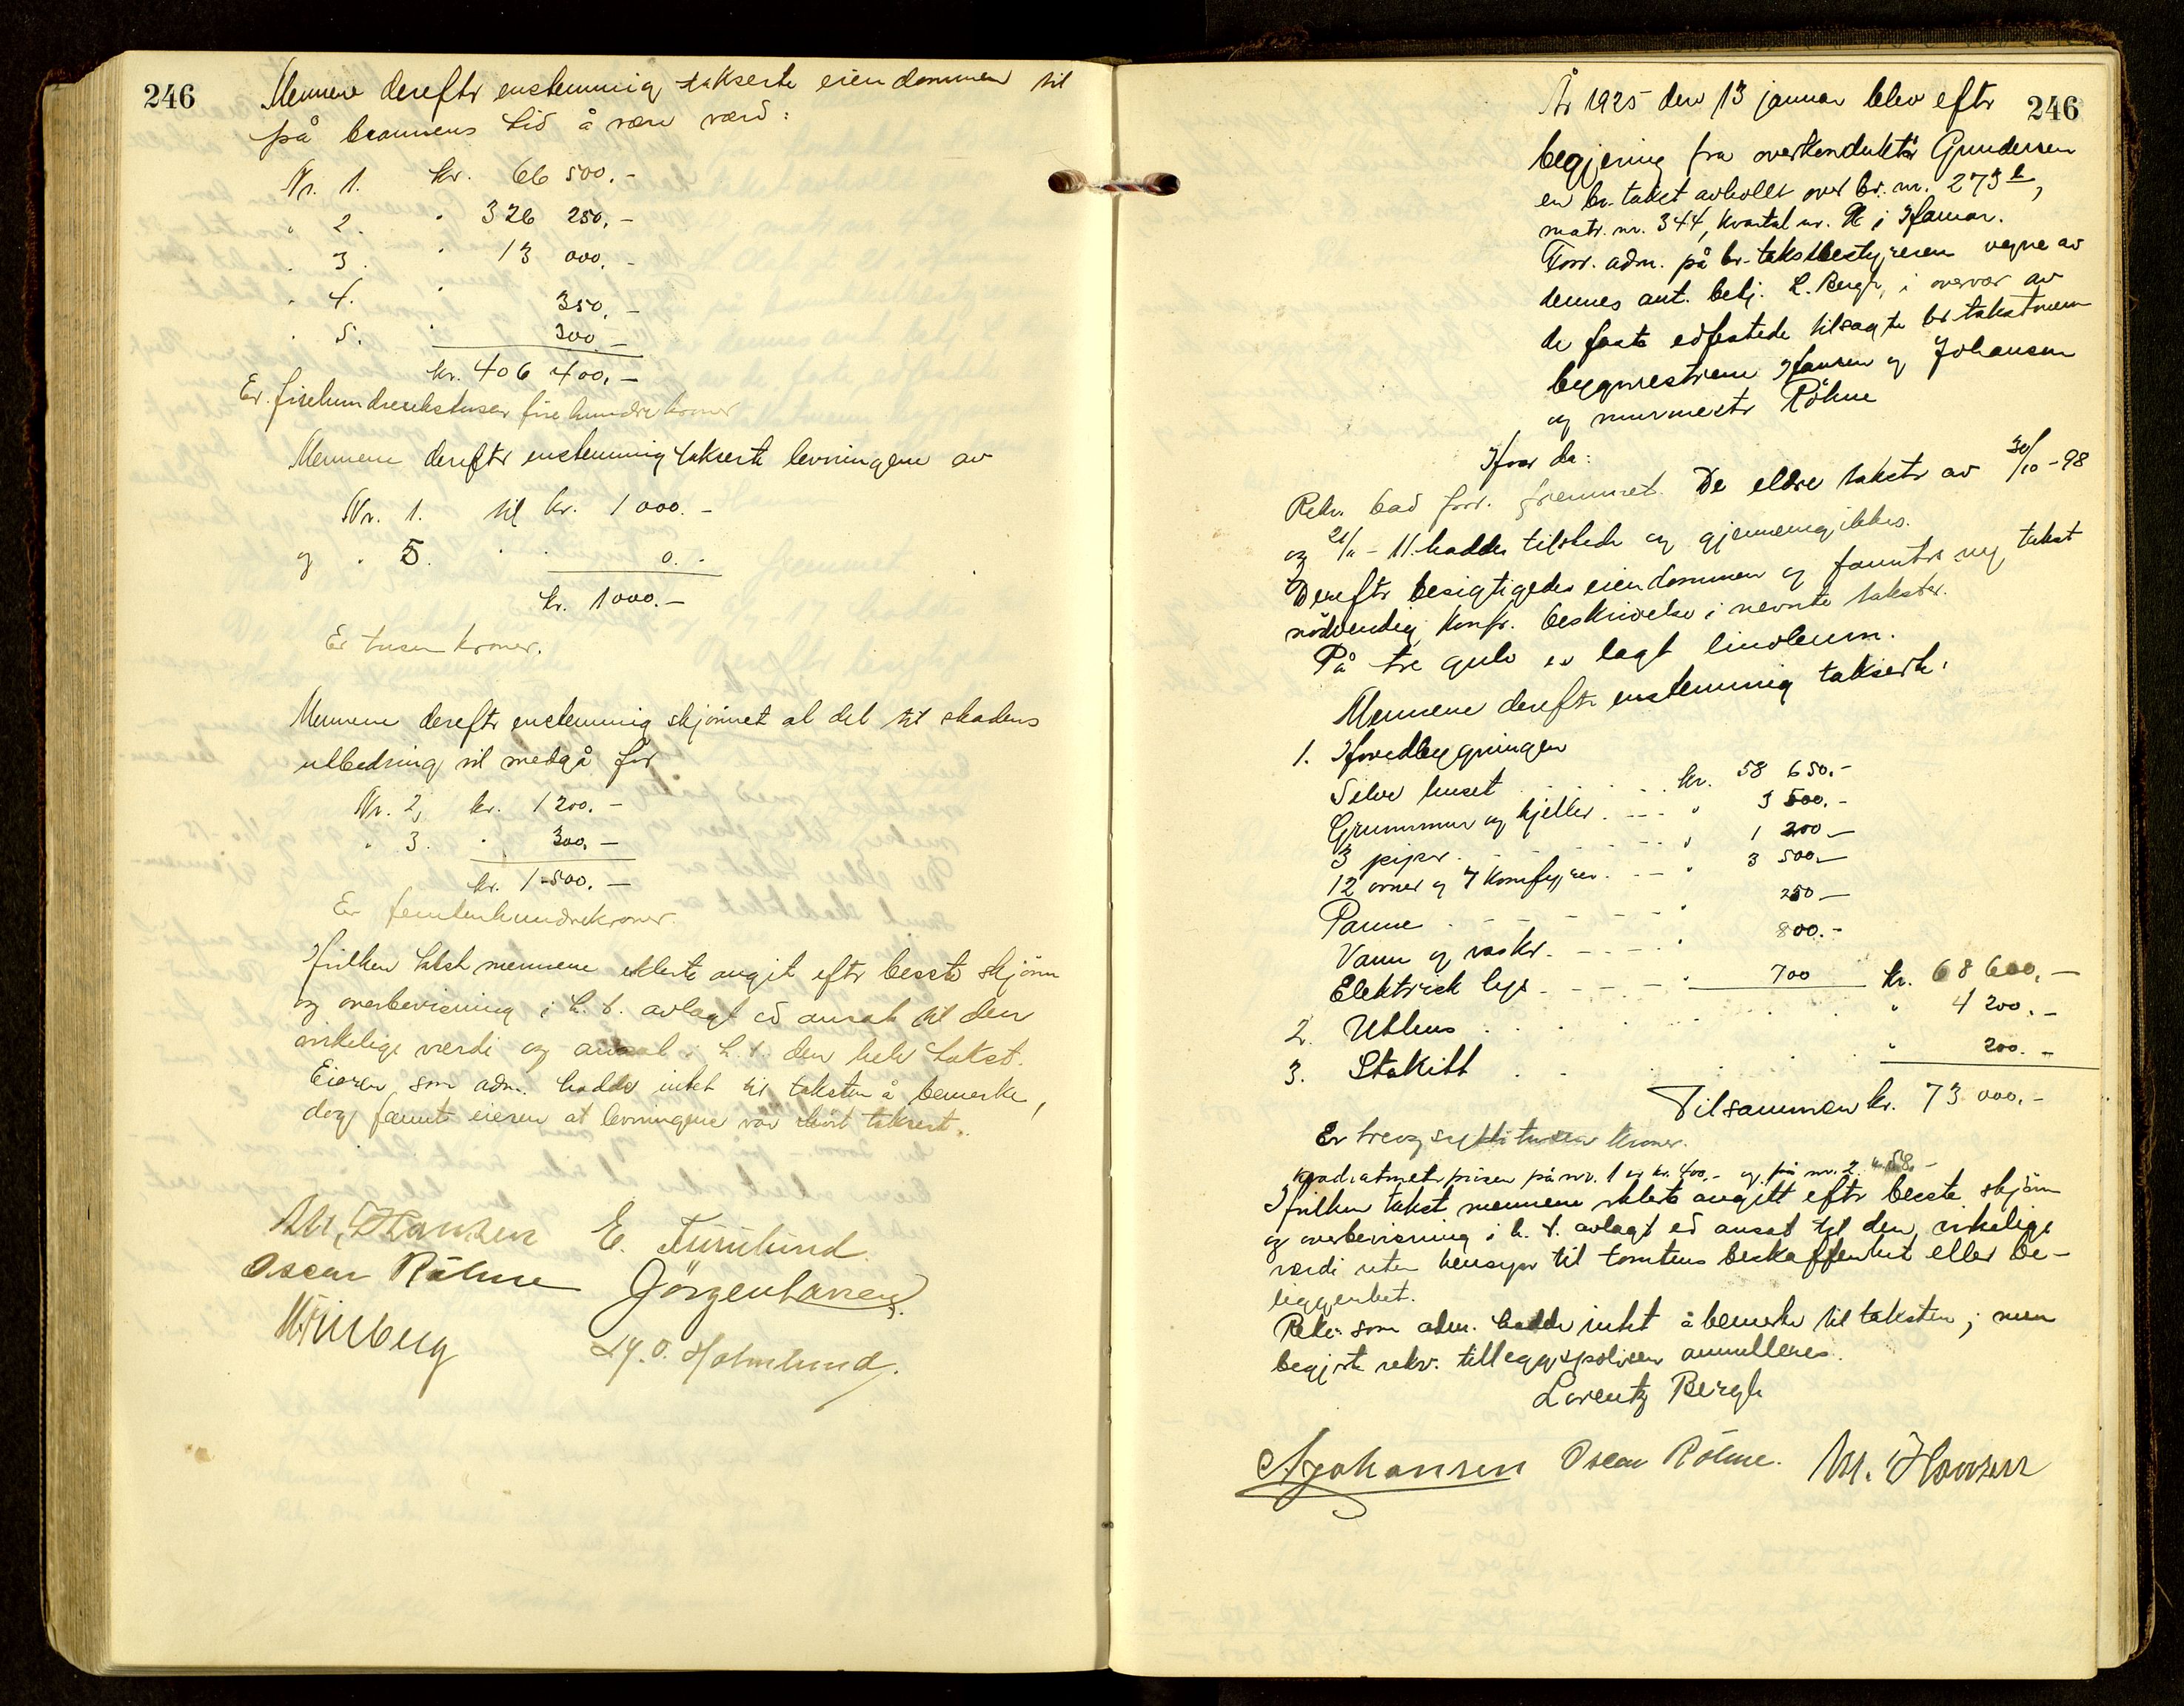 246
Mennene derefter enstemmig takserte eiendommen til
på brannens tid å være værd:
Nr. 1. kr. 66 500.-
" 2. " 326 250.-
" 3. " 13 000.-
" 4. " 350.-
" 5. " 300.-
kr. 406 400.-
Er. firehundreseks tusen fire hundre kroner
Mennene derefter enstemmig takserte levningene av
Nr. 1. til kr. 1 000.-
og " 5. " " 0.-
kr. 1000.-
Er tusen kroner.
Mennene derefter enstemmig skjønnet at det til skadens
utbedring vil medgå for
Nr. 2, kr. 1 200.-
" 3. " 300.-
kr. 1 500.-
Er femtenhundrekroner.
Hvilken takst mennene erklærte angit efter beste skjønn
og overbevisning i h. t. avlagt ed ansat til den
virkelige værdi og ansat i h. t. den hele takst.
Eieren som adm. hadde intet til taksten å bemerke,
dog fannt eieren at levningene var høit taksert.
M. Hansen E. Furulund
Oscar Röhne Jörgen Larsen
Lg. O. Holmlund.
246
År 1925 den 13 januar blev efter
begjering fra overkonduktør Gundersen
en br. takst avholdt over br. nr. 273 b,
matr. nr. 344, kvartal nr. 9 i Hamar.
Forr. adm. på br. takstbestyreren vegne av
dennes aut. betj. L. Bergh, i overvær av
de faste edfestede tilsagte br. takstmenn
byggmestrene Hansen og Johansen
og murmester Röhne
Hvor da:
Rekv. bad forr. fremmet. De eldre takster av 30/10 - 98
og 21/11 - 11 haddes tilstede og gjennemgikkes.
Derefter besigtigedes eiendommen og fanntes ny takst
nödvendig. Konfr. beskrivelse i nevnte takster.
På tre gulv er lagt linoleum.
Mennene derefter enstemmig takserte:
1. Hovedbygningen
Selve huset . . . . kr. 58 650.-
Grunnmur og kjeller. - - - " 3 500.-
3 piper. - - - - " 1 200-
12 ovner og 7 komfyrer. - - - " 3 500-
Panne . - - - - " 250-
Vann og vasker. - - - " 800.-
Elektrisk lys - - - - " 700 kr. 68 600.-
2. Uthus . . . . . " 4 200.-
3. Stakitt . . . . " 200.-
Tilsammen kr. 73 000.-
Er treogsyttitusen kroner.
Kvadratmeterprisen på nr. 1 er kr. 400.- og på nr. 2 kr. 58.-
Hvilken takst mennene erklærte angitt efter beste skjønn
og overbevisning i h. t. avlagt ed ansat til den virkelige
verdi uten hensyn til tomtens beskaffenhet eller be-
liggenhet.
Rekv. som adm. hadde intet å bemerke til taksten; men
begjærte rekv. tilleggspolisen annulleres.
Lorentz Bergh
A Johansen Oscar Röhne. M. Hansen